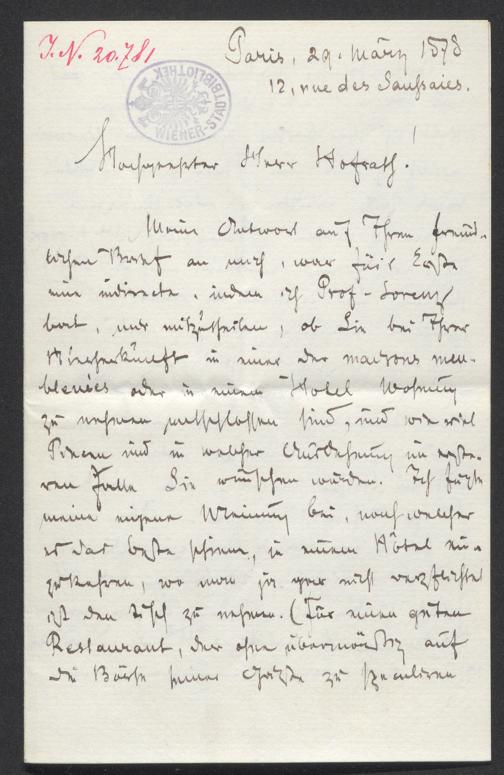 J. N. 20.781
WIENER-STADTBIBLIOTHEK
Paris, 29. März 1878
12, rue des Saussaies.
Hochgeehrter Herr Hofrath!
Meine Antwort auf Ihren freund-
lichen Brief an mich, war für's Erste
eine indirecte, indem ich Prof. Lorenz
bat, mir mitzutheilen, ob Sie bei Ihrer
Hierherkunft in einer der maisons meu-
blées oder in einem Hotel Wohnung
zu nehmen entschlossen sind, und wie viel
Piecen und in welcher Ausdehnung im erste-
ren Falle Sie wünschen würden. Ich fügte
meine eigene Meinung bei, nach welcher
es das beste schiene, in einem Hôtel ein-
zukehren, wo man ja gar nicht verpflichtet
ist den Tisch zu nehmen. (Für einen guten
Restaurant, der ohne übermäßig auf
die Börse seiner Gäste zu speculiren